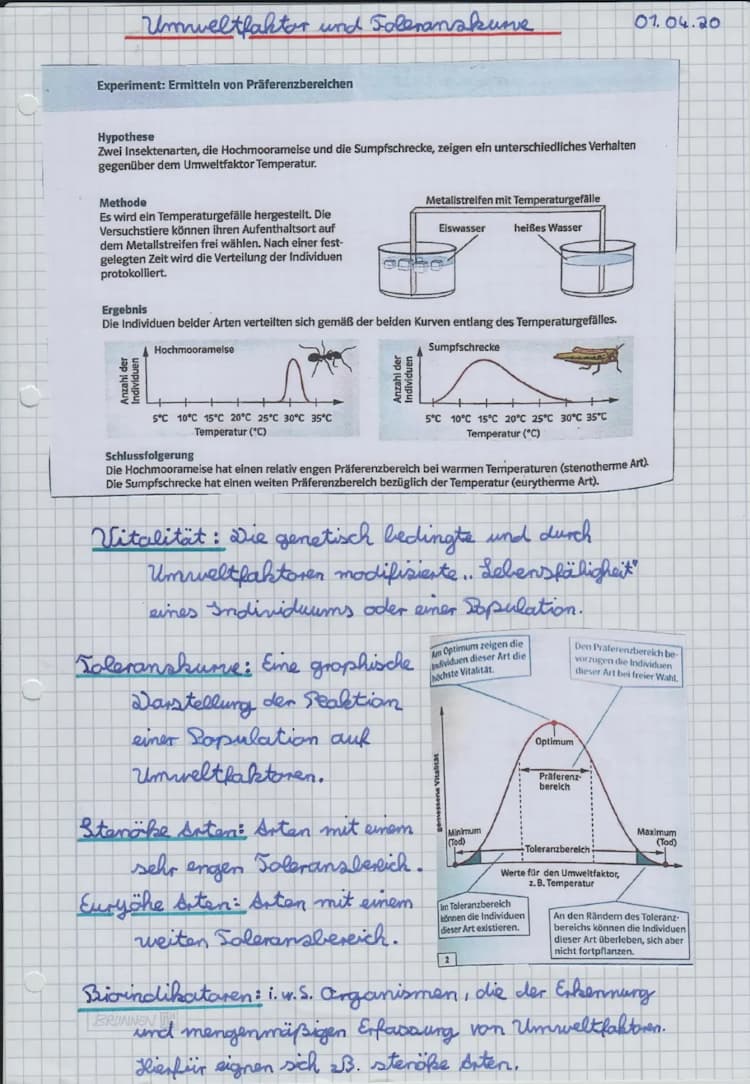 Umweltfaktor und Toleranzkurve 01.04.20
Experiment: Ermitteln von Präferenzbereichen
Hypothese
Zwei Insektenarten, die Hochmoorameise und die Sumpfschrecke, zeigen ein unterschiedliches Verhalten
gegenüber dem Umweltfaktor Temperatur.
Methode
Es wird ein Temperaturgefälle hergestellt. Die
Versuchstiere können ihren Aufenthaltsort auf
dem Metallstreifen frei wählen. Nach einer fest-
gelegten Zeit wird die Verteilung der Individuen
protokolliert.
Metallstreifen mit Temperaturgefälle
Eiswasser heißes Wasser
Ergebnis
Die Individuen beider Arten verteilten sich gemäß der beiden Kurven entlang des Temperaturgefälles.
Anzahl der
Individuen
Hochmoorameise
5°C 10°C 15°C 20°C 25°C 30°C 35°C
Temperatur (°C)
Anzahl der
Individuen
Sumpfschrecke
5°C 10°C 15°C 20°C 25°C 30°C 35°C
Temperatur (°C)
Schlussfolgerung
Die Hochmoorameise hat einen relativ engen Präferenzbereich bei warmen Temperaturen (stenotherme Art).
Die Sumpfschrecke hat einen weiten Präferenzbereich bezüglich der Temperatur (eurytherme Art).
Vitalität: Die genetisch bedingte und durch
Umweltfaktoren modifizierte „Lebensfähigkeit"
eines Individuums oder einer Population.
Toleranzkurve: Eine graphische
Darstellung der Reaktion
einer Population auf
Umweltfaktoren.
Stenöke Arten: Arten mit einem
sehr engen Toleranzbereich.
Euryöke Arten: Arten mit einem
weiten Toleranzbereich.
Am Optimum zeigen die
Individuen dieser Art die
höchste Vitalität.
Den Präferenzbereich be-
vorzugen die Individuen
dieser Art bei freier Wahl.
gemessene Vitalität
Optimum
Präferenz-
bereich
Minimum
(Tod)
Maximum
(Tod)
Toleranzbereich
Werte für den Umweltfaktor,
z. B. Temperatur
Im Toleranzbereich
können die Individuen
dieser Art existieren.
An den Rändern des Toleranz-
bereichs können die Individuen
dieser Art überleben, sich aber
nicht fortpflanzen.
2
Bioindikatoren: i.w.S. Organismen, die der Erkennung
und mengenmäßigen Erfassung von Umweltfaktoren.
Hierfür eignen sich z.B. stenöke Arten.
BRUNNEN